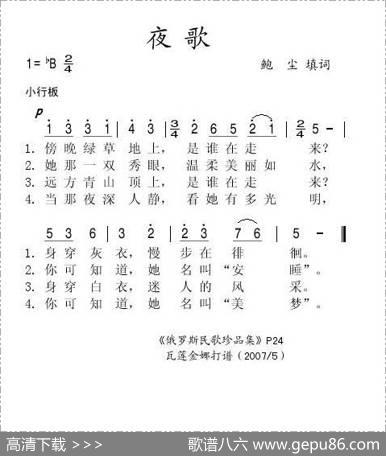 夜 歌
1= ♭B 2/4
鲍 尘 填词
小行板
p
1 3 3 1 | 4 3 | 3/4 2 6 5 2 1 | 2/4 5 - |
1. 傍 晚 绿 草 地 上， 是 谁 在 走 来？
2. 她 那 一 双 秀 眼， 温 柔 美 丽 如 水，
3. 远 方 青 山 顶 上， 是 谁 在 走 来？
4. 当 那 夜 深 人 静， 看 她 有 多 光 明，
5 3 6 | 3 2 | 2 3 7 6 | 5 - ‖
1. 身 穿 灰 衣， 慢 步 在 徘 徊。
2. 你 可 知 道， 她 名 叫 “安 睡”。
3. 身 穿 白 衣， 迷 人 的 风 采。
4. 你 可 知 道， 她 名 叫 “美 梦”。
《俄罗斯民歌珍品集》P24
瓦莲金娜打谱（2007/5）
高清下载 >>> 歌谱八六 www.gepu86.com